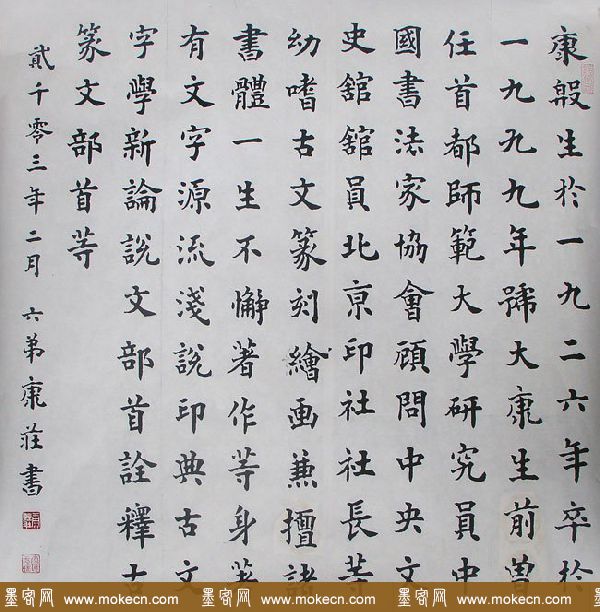 康殷生於一九二六年卒於
一九九九年號大康生前曾
任首都師範大學研究員中
國書法家協會顧問中央文
史舘舘員北亰印社社長等
幼嗜古文篆刻繪画兼擅諸
書體一生不懈著作等身著
有文字源流淺說印典古文
字學新論說文部首詮釋古
篆文部首等
貳千零三年二月 六弟康莊書
墨客网 www.mokecn.com 墨客网 www.mokecn.com 墨客网 www.mokecn.com